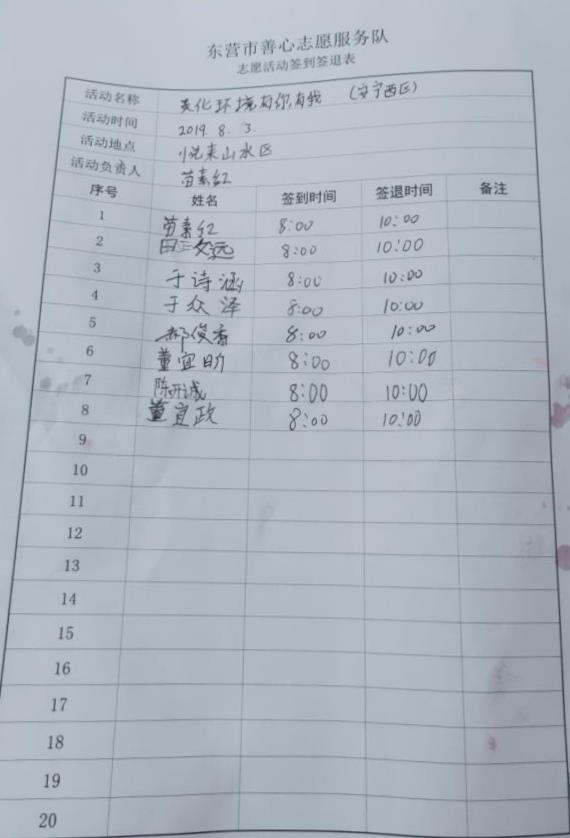 东营市善心志愿服务队
志愿活动签到签退表
活动名称 美化环境有你有我 (安宁西区)
活动时间 2019. 8. 3.
活动地点 悦来山水区
活动负责人 苗素红
序号 姓名 签到时间 签退时间 备注
1 苗素红 8:00 10:00
2 文远 8:00 10:00
3 于诗涵 8:00 10:00
4 于众泽 8:00 10:00
5 郝俊香 8:00 10:00
6 董宜昕 8:00 10:00
7 陈 诚 8:00 10:00
8 董宜政 8:00 10:00
9
10
11
12
13
14
15
16
17
18
19
20